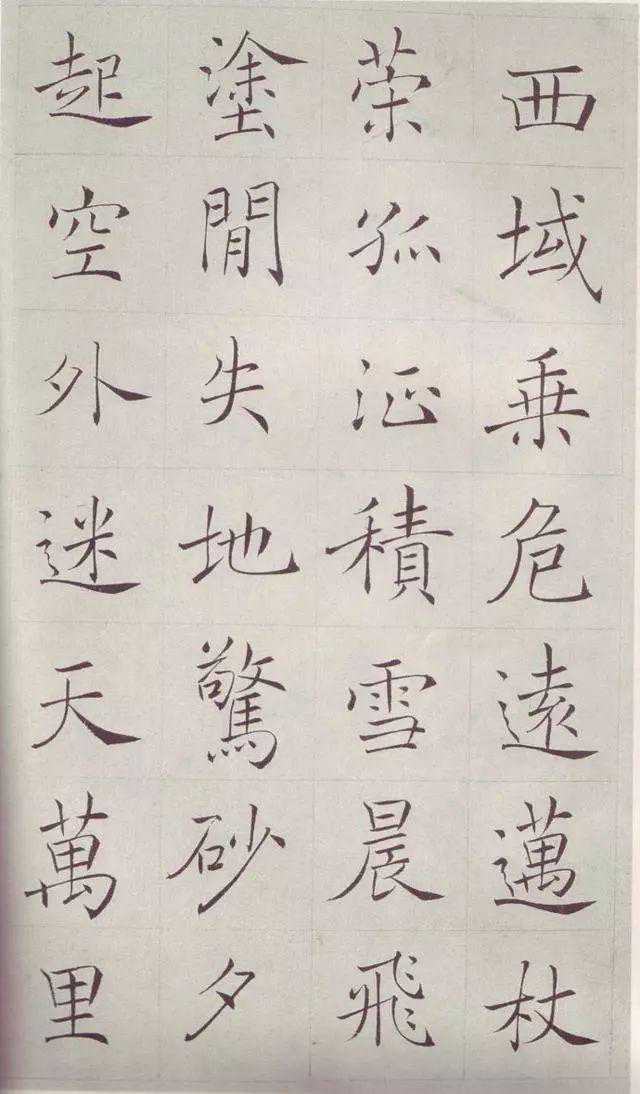 西域乗危遠邁杖
荣孤征積雪晨飛
塗閒失地驚砂夕
起空外迷天萬里